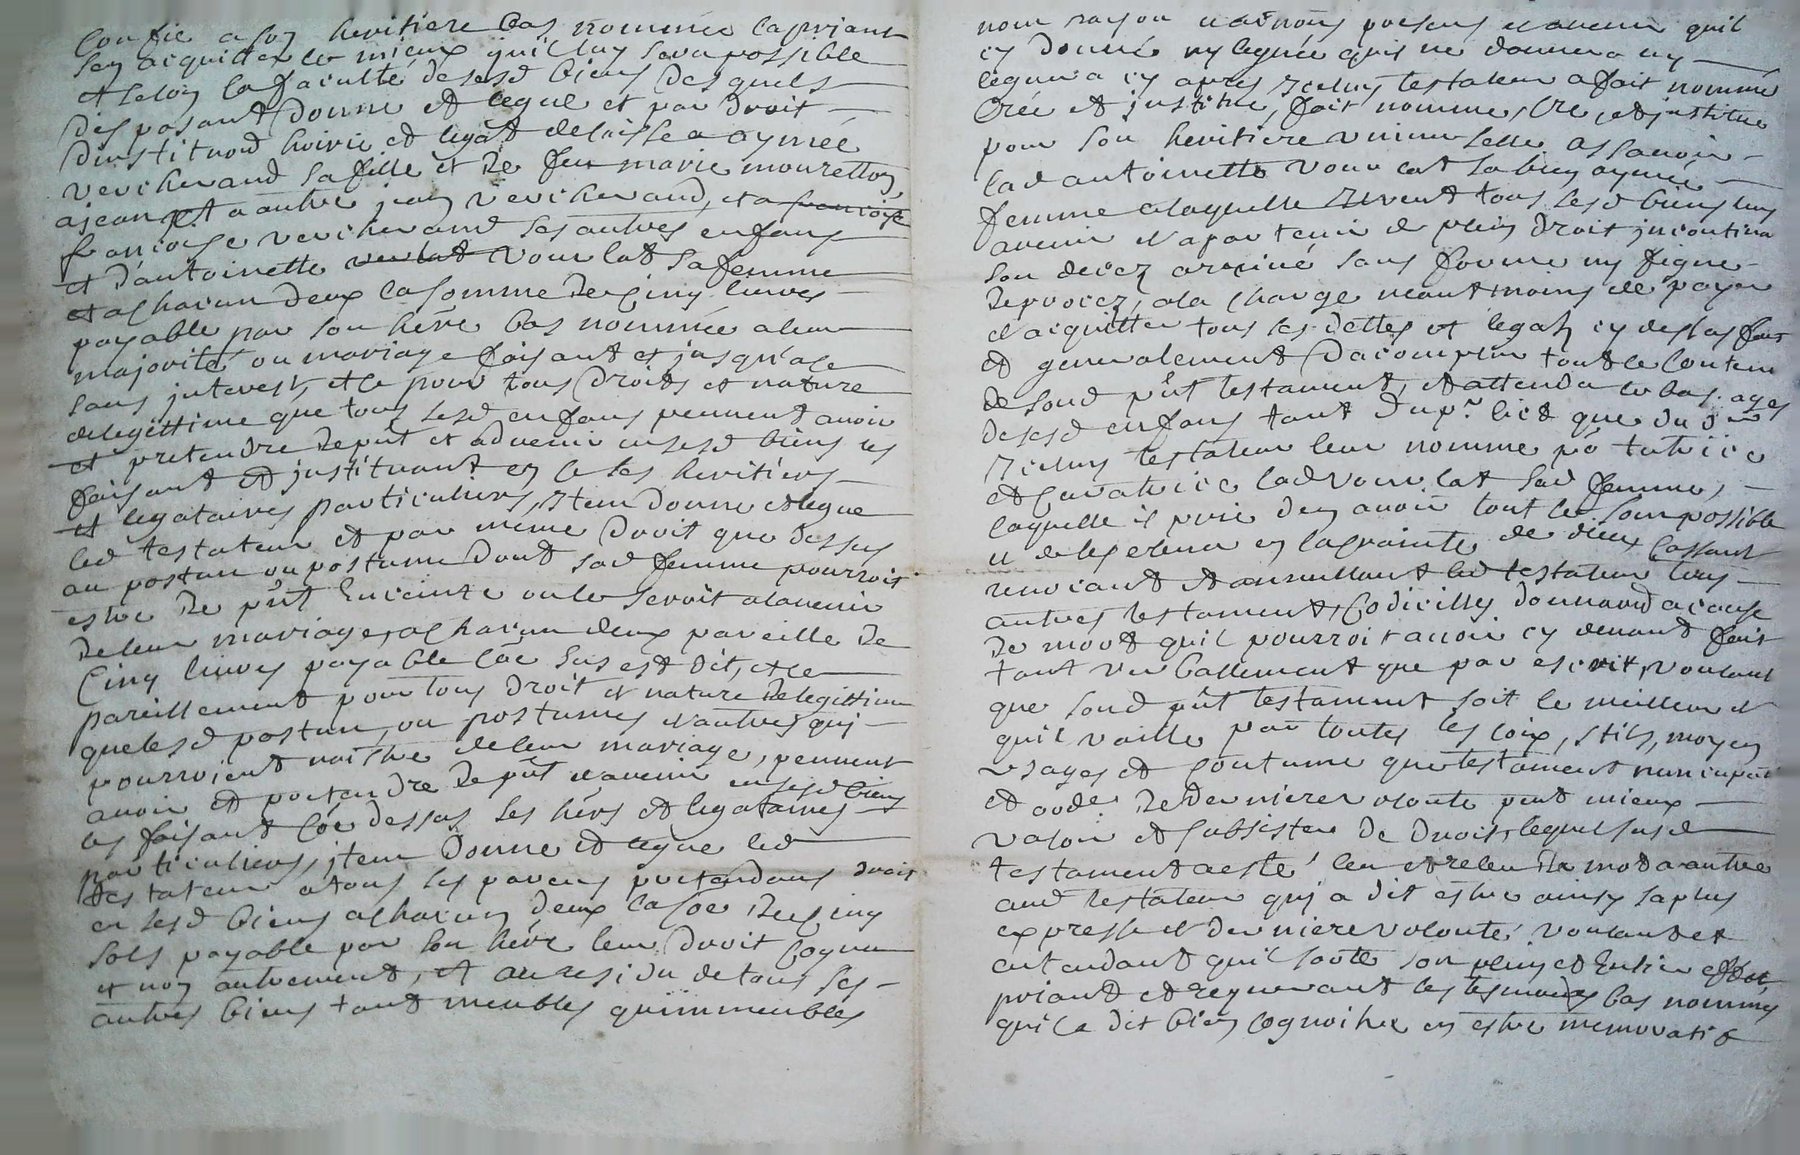 confie a son heritiere bas nommée la priant
sen acquitter le mieux quil luy sera possible
et selon la faculté desesd biens desquels
disposant donne et legue et par droit
dinstitu͞on hoirie et legat delaisse a aymée
vercherand sa fille et de feu marie mouretton
a jean et a autre jean vercherand, et a francoise
francoise vercherand ses autres enfans
et dantoinette verlat vourlat sa femme
et a chacun deux la somme de cinq livres
payable par son hére bas nommée a leur
majorité ou mariage faisant et jusqu'ale
sans interest, et ce pour tous droits et nature
de legittime que tous sesd enfans peuvent avoir
et pretendre de pn̄t et advenir en sesd biens les
faisant et instituant en ce ses heritiers
et legataires particuliers, Item donne et legue
led testateur et par meme droit que dessus
au postum ou postume dont sad femme pourroit
estre de pn̄t Enceinte ou le seroit alavenir
de leur mariage, a chacun deux pareille de
Cinq livres payable cōe sus est dit, et ce
pareillement pour tous droit et nature de legittime
que lesd postum, ou postumes et autres qui
pourroient naistre de leur mariage, peuvent
avoir et pretendre de pn̄t et avenir en sesd biens
les faisant cōe dessus ses hérs et legataires
particuliers, item donne et legue led
testateur a tous ses parens pretendans droit
en sesd biens a chacun deux la sōe de cinq
sols payable par son hére leur droit cognu
et non autrement, et au residu de tous ses
autres biens tant meubles quimmeubles
nom rayson et actions presens et avenir quil
cy donné ny legué quil ne donnera ny
leguera cy apres Iceluy testateur a fait nommé
Créé et institué, fait nomme, Cre, et institue
pour son heritiere universelle assavoir
lad antoinette vourlat sa bien aymée
femme a laquelle Il veut tous sesd biens luy
avenir et apartenir de plein droit incontinan
son decez arrivé sans forme ny figure
de procez, a la charge neantmoins de payer
et acquitter tous ses dettes et legatz cy dessus fait
et generalement dacomplir tout le contenu
de sond pn̄t testament, et attendu le bas ages
desesd enfans tant du pr. lict que du 2e
Iceluy testateur leur nomme po tutrice
et Curatrice lad vourlat sad femme,
laquelle il prie den avoir tout le soin possible
et de les elever en la crainte de dieu Cassant
revocant et annullant led testateur tous
autres testament, Codicilles donna͞on a cause
de mort quil pourroit avoir cy devant fait
tant verballement que par escrit, voulant
que sond pn̄t testament soit le meilleur et
quil vaille par toutes les loix, stils, moyen
usages et Coutume que testament nuncupatif
et orde de derniere volonté peut mieux
valoir et subsister de droit, lequel susd
testament a esté leu et releu de mot a autre
aud testateur qui a dit estre ainsy sa plus
expresse et derniere volonté, voulant et
entendant quil sorte son plein et Entier effet,
priant et requerant les tesmoins bas nommés
quil a dit bien cognoitre en estre memoratif